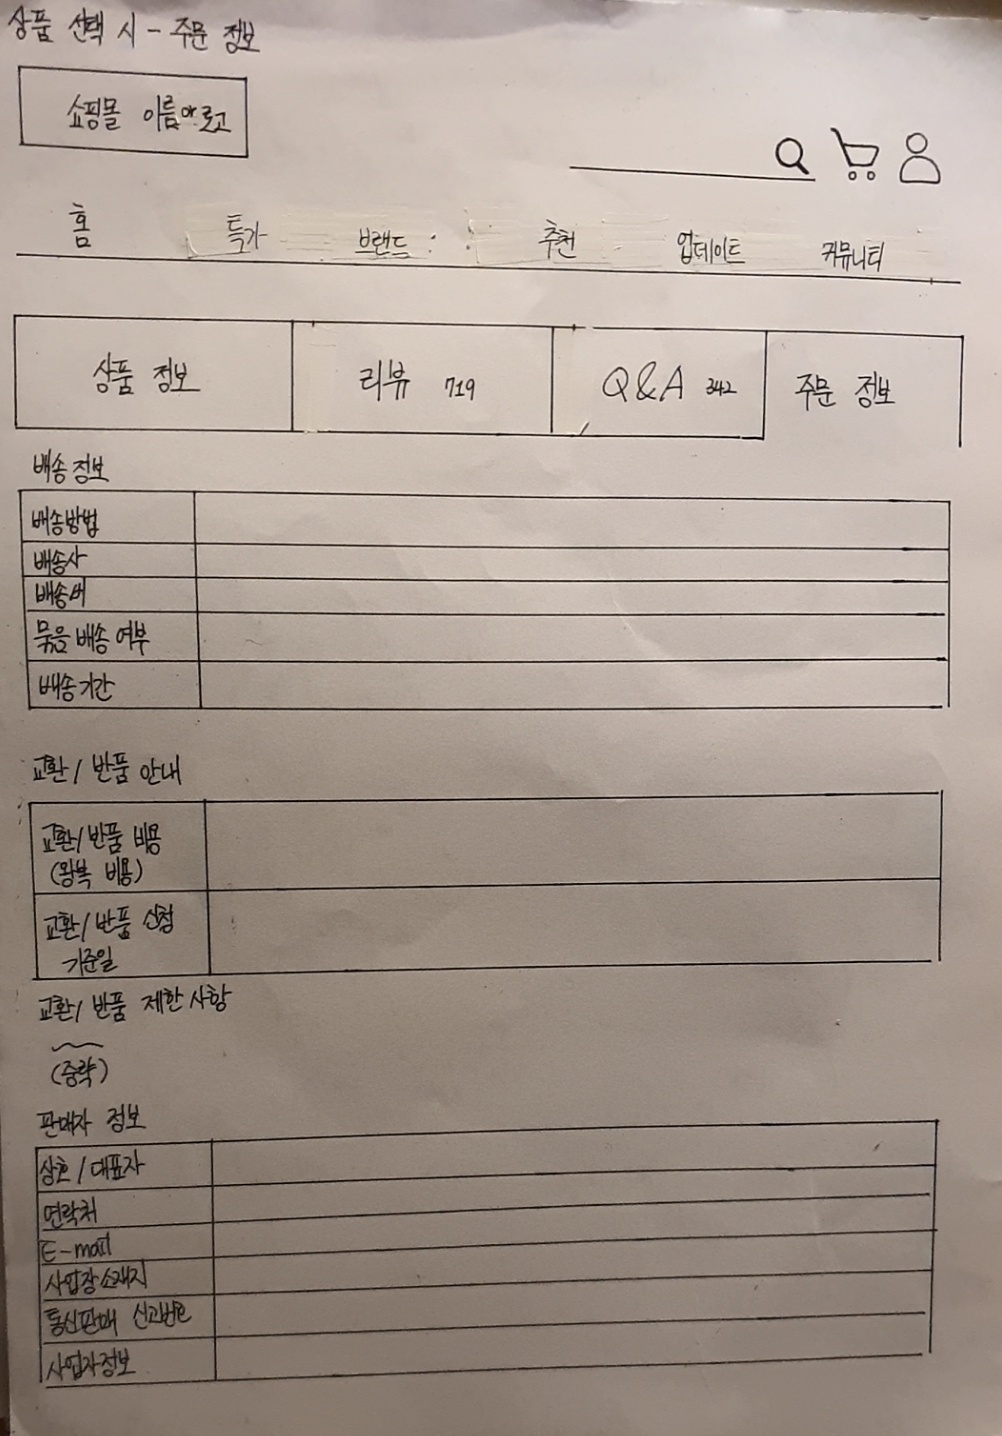 상품 선택 시 - 주문 정보
쇼핑몰 이름 or 로고
홈 특가 브랜드 추천 업데이트 커뮤니티
상품 정보 리뷰 719 Q&A 342 주문 정보
배송 정보
배송방법
배송사
배송비
묶음 배송 여부
배송기간
교환/반품 안내
교환/반품 비용
(왕복 비용)
교환/반품 신청
기준일
교환/반품 제한 사항
(중략)
판매자 정보
상호/대표자
연락처
E-mail
사업장소재지
통신판매 신고번호
사업자정보